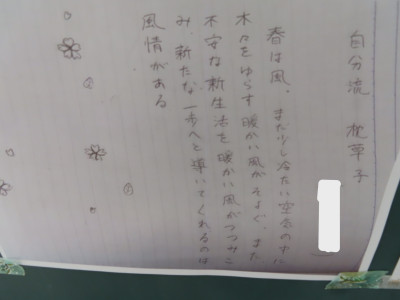 自分流 枕草子
春は風。まだ少し冷たい空気の中に
木々をゆらす暖かい風がそよぐ。また
不安な新生活を暖かい風がつつみこ
み、新たな一歩へと導いてくれるのは
風情がある